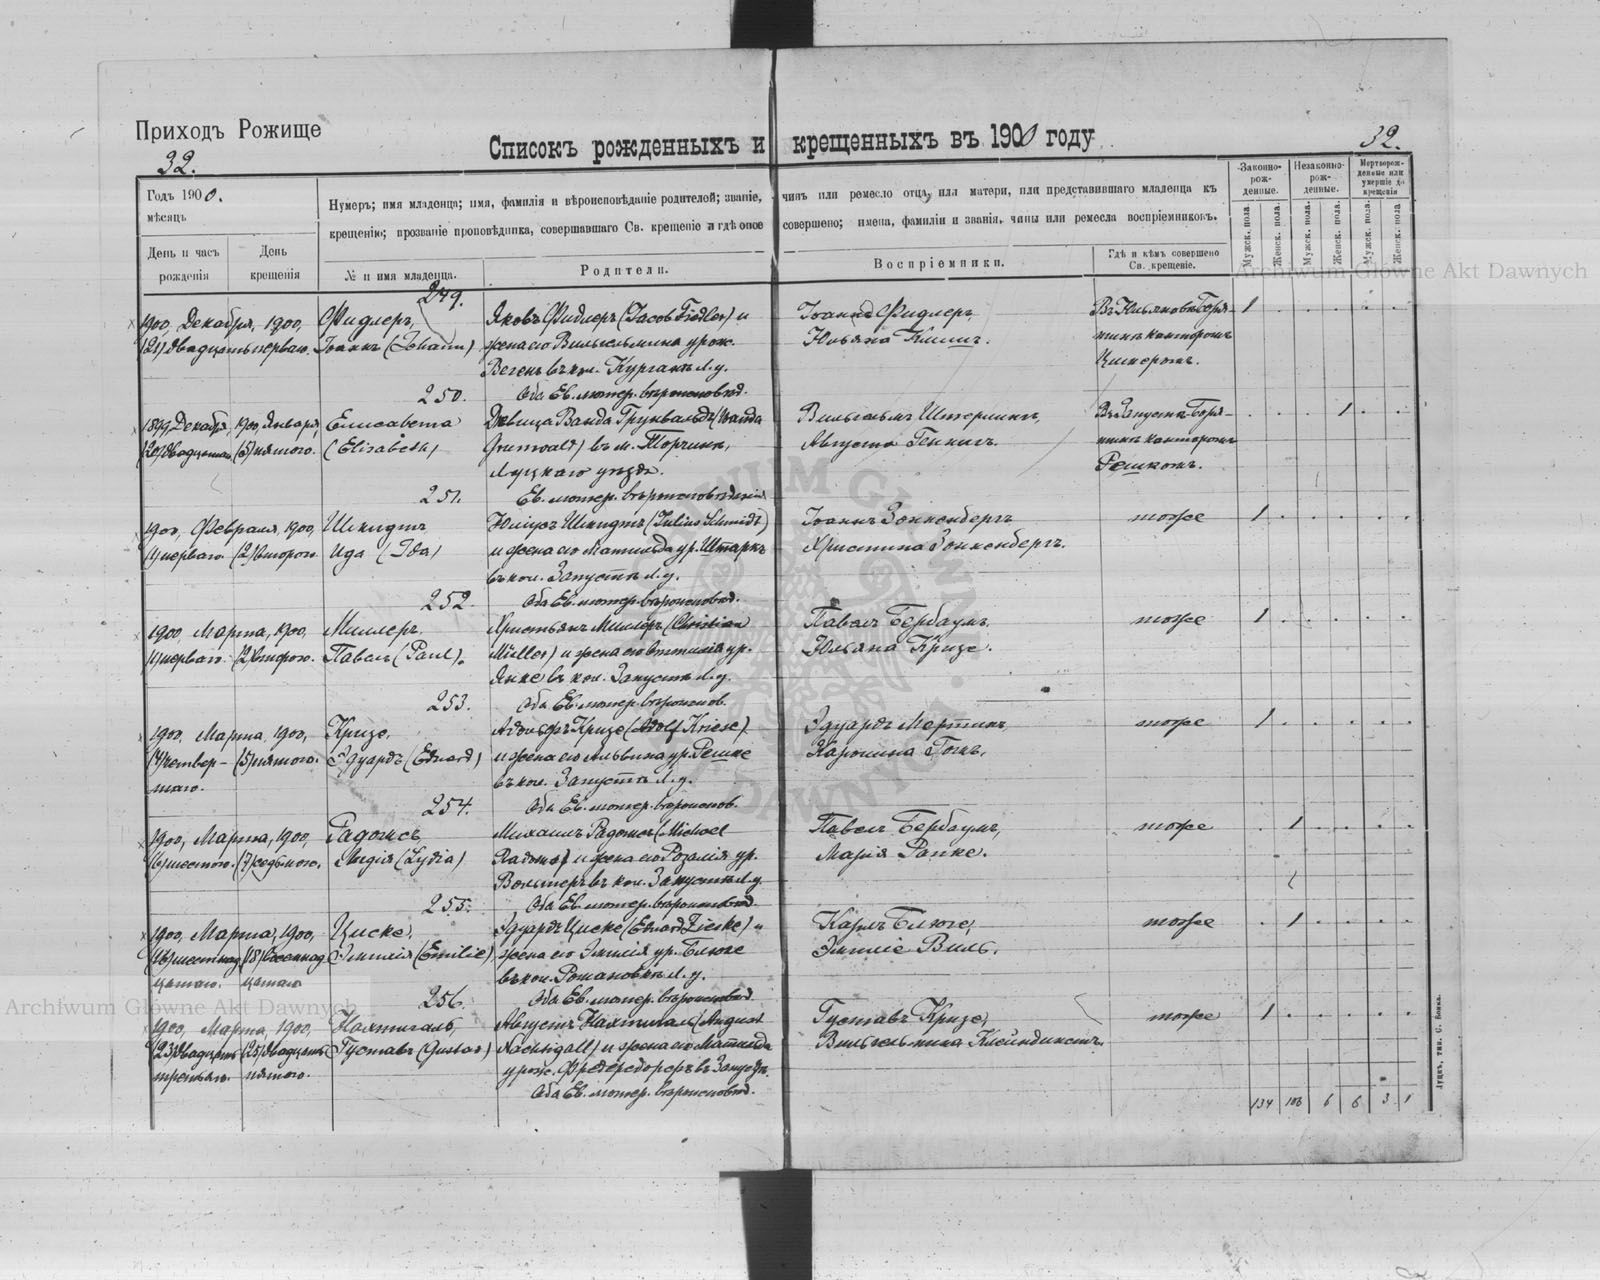 Приходъ Рожище
32.
Списокъ рожденныхъ и крещенныхъ въ 1900 году
32.
Годъ 1900.
мѣсяцъ
День и часъ рожденія
День крещенія
Нумеръ; имя младенца; имя, фамилія и вѣроисповѣданіе родителей; званіе, чинъ или ремесло отца, или матери, или представившаго младенца къ
крещенію; прозваніе проповѣдника, совершавшаго Св. крещеніе и гдѣ оное совершено; имена, фамиліи и званія, чины или ремесла воспріемниковъ.
№ и имя младенца.
Родители.
Воспріемники.
Гдѣ и кѣмъ совершено Св. крещеніе.
Законно-рож-денные.
Незаконно-рож-денные.
Мертворож-денные или умершіе до крещенія
Мужск. пола.
Женск. пола.
Мужск. пола.
Женск. пола.
Мужск. пола.
Женск. пола.
249.
1900, Декабря, 1900, Фидлеръ, Яковъ Фидлеръ (Jacob Fiedler) и Іоаннъ Фидлеръ, 1
(21) двадцать перваго. Іоаннъ (Johann) жена его Вильгельмина урож. Юльяна
въ кол. Курганъ Л. у.
250. Оба Ев. лютер. вѣроисповѣд.
1899, Декабр. 1900, Января, Елисавета Дѣвица Ванда Грунвальдъ (Wanda Вильгельмъ Штерлинъ, 1
(20) двадцатаго (5) пятаго. (Elisabeth) Grunwald) въ м. Торчинъ, Августа канторомъ
Луцкаго уѣзда. Решкомъ.
251. Ев. лютер. вѣроисповѣданія
1900, Февраля, 1900, Шмидтъ Юліусъ Шмидтъ (Julius Schmidt) Іоаннъ Зонненбергъ тоже 1
(1) перваго. (2) второго. Ида (Ida) и жена его Матильда ур. Штаркъ Христина Зонненбергъ.
въ кол. Запустъ Л. у.
252. Оба Ев. лютер. вѣроисповѣд.
1900, Марта, 1900, Миллеръ, Христьянъ Миллеръ (Christian Павелъ Бербаумъ, тоже 1
(1) перваго. (2) второго. Павелъ (Paul). Müller) и жена его ур. Юльяна Кризе.
Янке въ кол. Запустъ Л. у.
253. Оба Ев. лютер. вѣроисповѣд.
1900, Марта, 1900, Кризе, Адольфъ Кризе (Adolf Kriese) Эдуардъ Мартинъ, тоже 1
(4) четвер- (5) пятаго. Эдуардъ (Eduard) и жена его Альвина ур. Решке Каролина
таго. въ кол. Запустъ Л. у.
254. Оба Ев. лютер. вѣроисповѣд.
1900, Марта, 1900, Радомсъ Михаилъ Радомсъ (Michael Павелъ Бербаумъ, тоже 1
(6) шестого. (7) седьмого. Лидія (Lydia) и жена его Розалія ур. Марія Рапке.
въ кол. Запустъ Л. у.
255. Оба Ев. лютер. вѣроисповѣд.
1900, Марта, 1900, Циске, Эдуардъ Циске (Eduard Zieske) и Карлъ Блюге, тоже 1
(16) шестнад (18) восемнад Эмилія (Emilie) жена его Эмилія ур. Блюге Эмиліе Виль.
цатаго. цатаго въ кол. Романовкѣ Л. у.
256. Оба Ев. лютер. вѣроисповѣд.
1900, Марта, 1900, Нахтигаль, Августъ Нахтигаль (August Густавъ Кризе, тоже 1
(23) двадцать (25) двадцать Густавъ (Gustav) Nachtigall) и жена его Матильда Вильгельмина Клейндинстъ.
третьяго. пятаго.
Оба Ев. лютер. вѣроисповѣд.
134 108 6 6 3 1
Луцкъ, тип. С. Бонка.
Archiwum Główne Akt Dawnych
Archiwum Główne Akt Dawnych